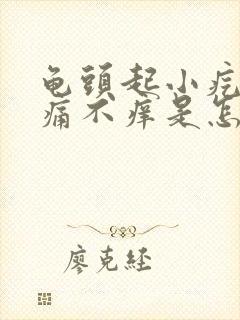 龟頭起小疙
痛不痒是怎
廖克经